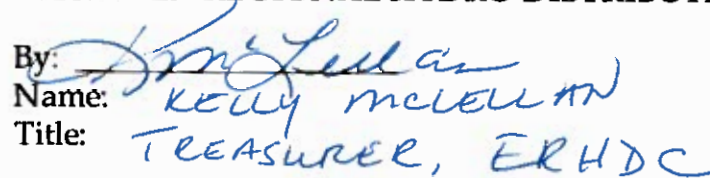 By: K McLellan
Name: KELLY MCLELLAN
Title: TREASURER, ERHDC